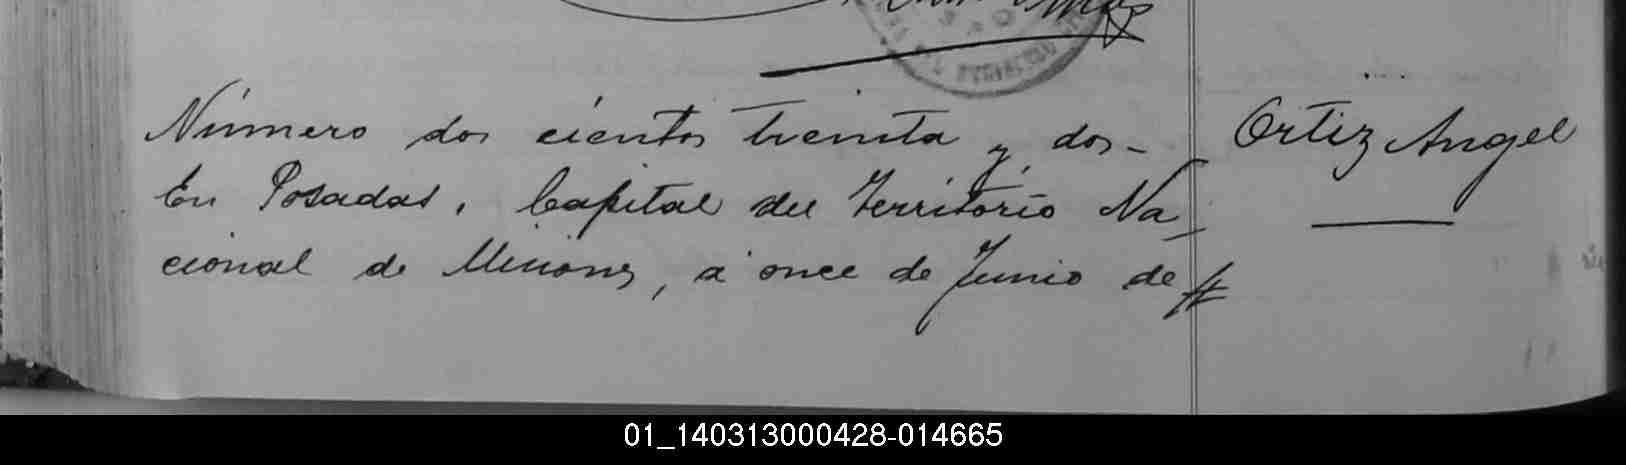 Número dos cientos treinta y dos-
En Posadas, Capital del Territorio Na_
cional de Misiones, a once de Junio de
Ortiz Angel
01_140313000428-014665